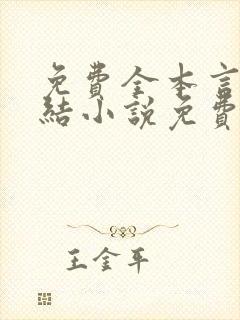 免費全本言
結小說免費
王金平